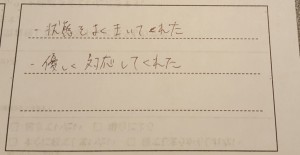 ・状態をよくきいてくれた
・優しく対応してくれた